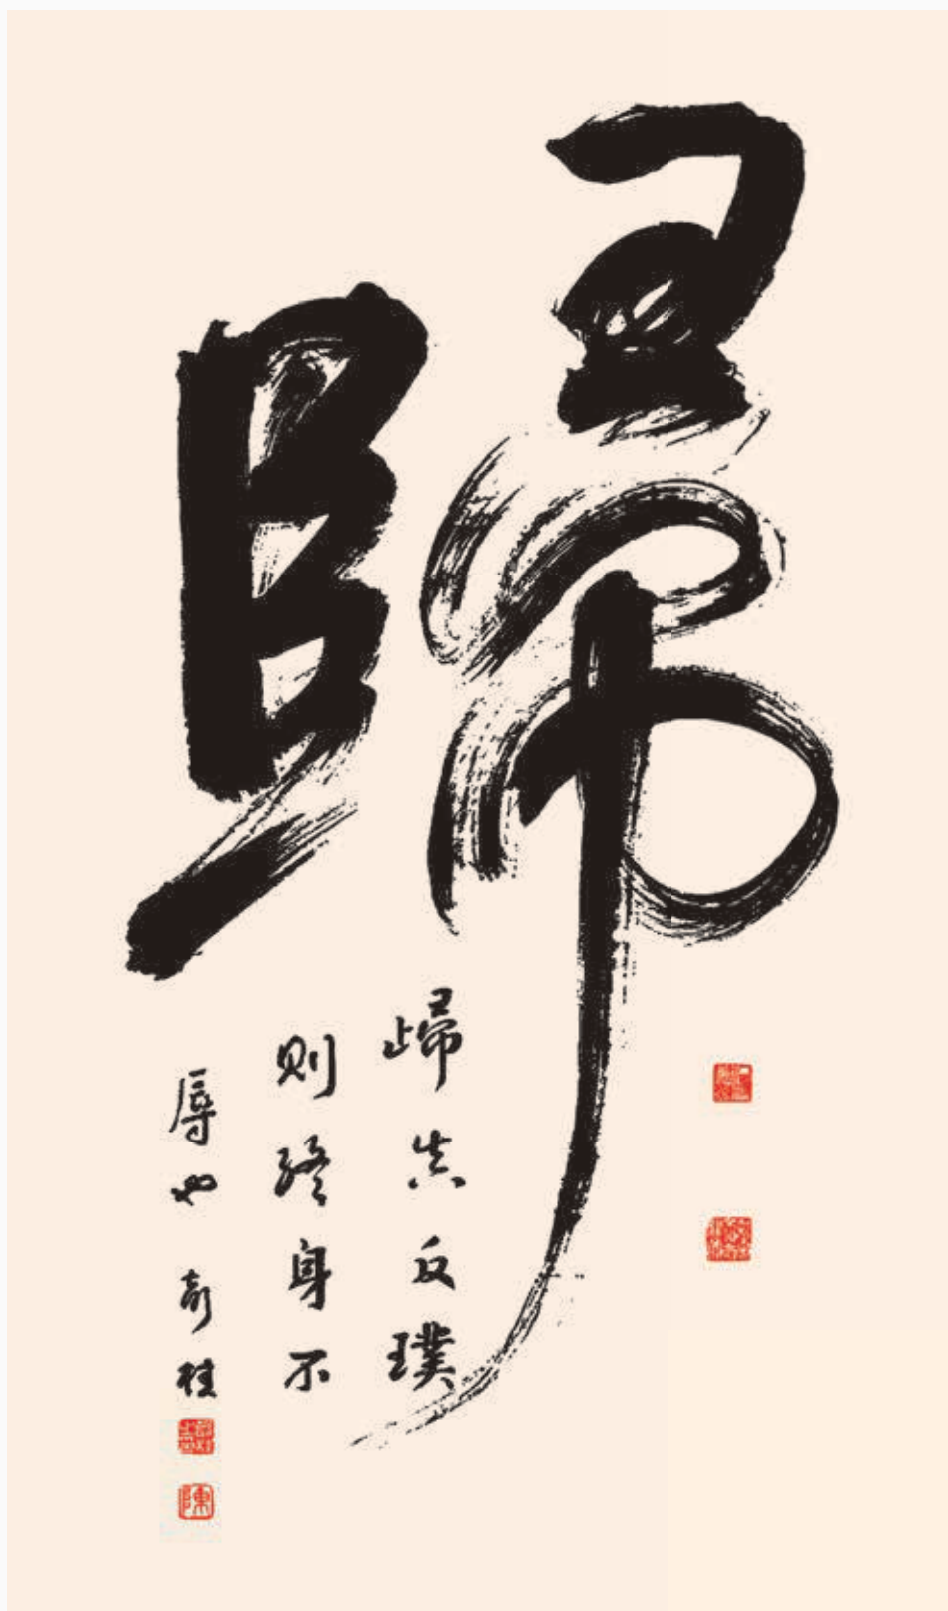 歸
歸真反璞
則終身不
辱也 奇桂
陳